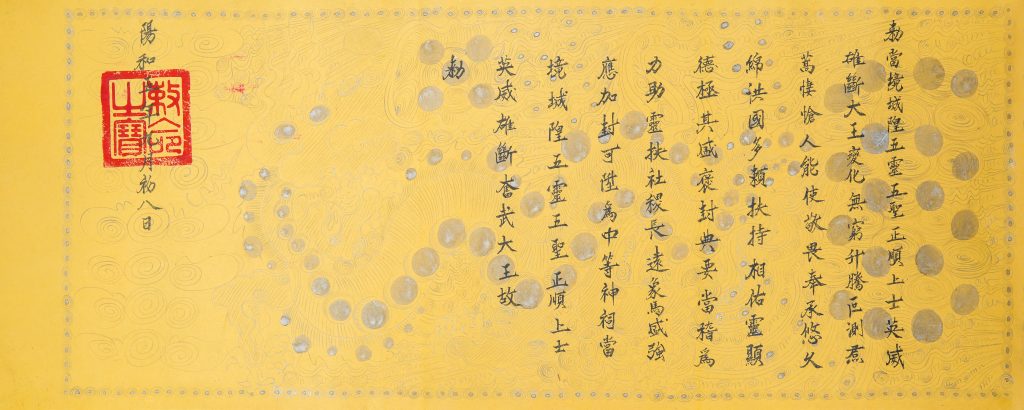 勅當境城隍五靈五聖正順上士英威
雄斷大王變化無窮升騰叵測焄
蒿悽愴人能使敬畏奉承悠久
綿洪國多賴扶持相佑靈顯
德極其盛褒封典要當稽爲
力助靈扶社稷長遠象馬盛強
應加封可陞爲中等神祠當
境城隍五靈五聖正順上士
英威雄斷武大王故
勅
陽和年月初八日
敕命之寶